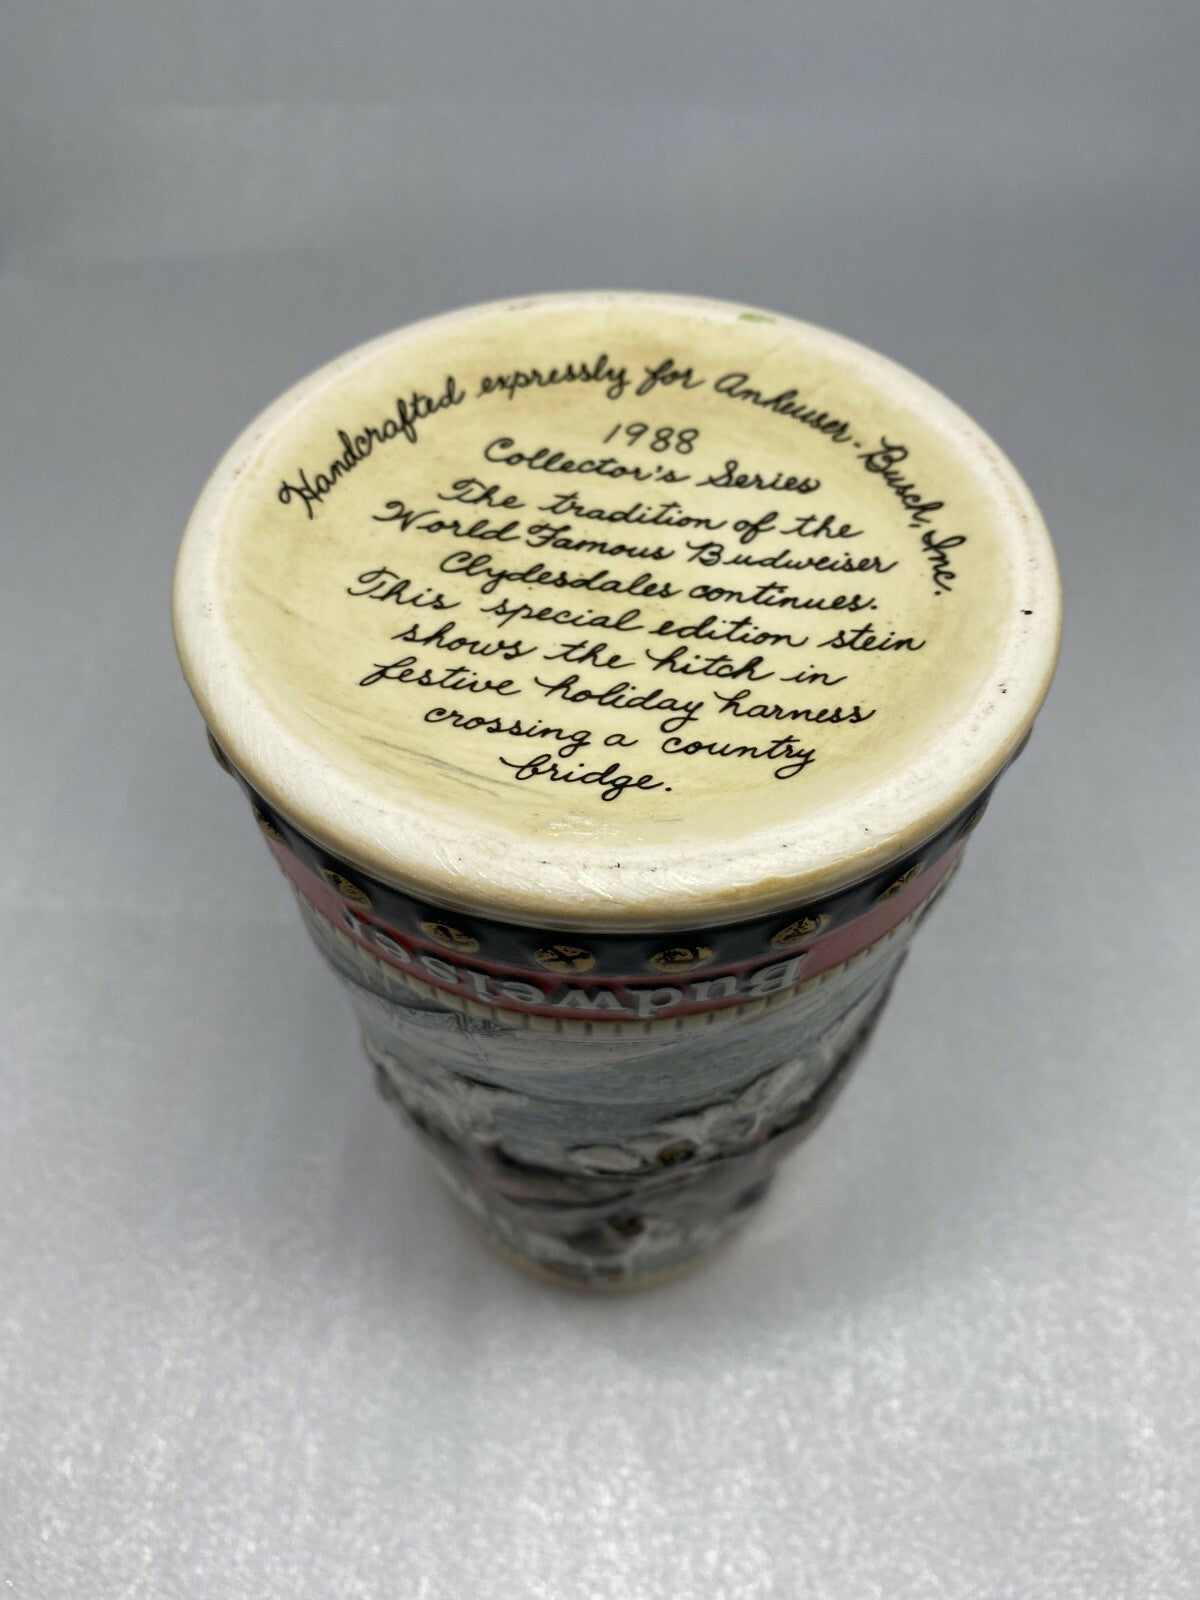 Handcrafted expressly for Anheuser-Busch, Inc.
1988
Collector's Series
The tradition of the
World Famous Budweiser
Clydesdales continues.
This special edition stein
shows the hitch in
festive holiday harness
crossing a country
bridge.
Budweiser